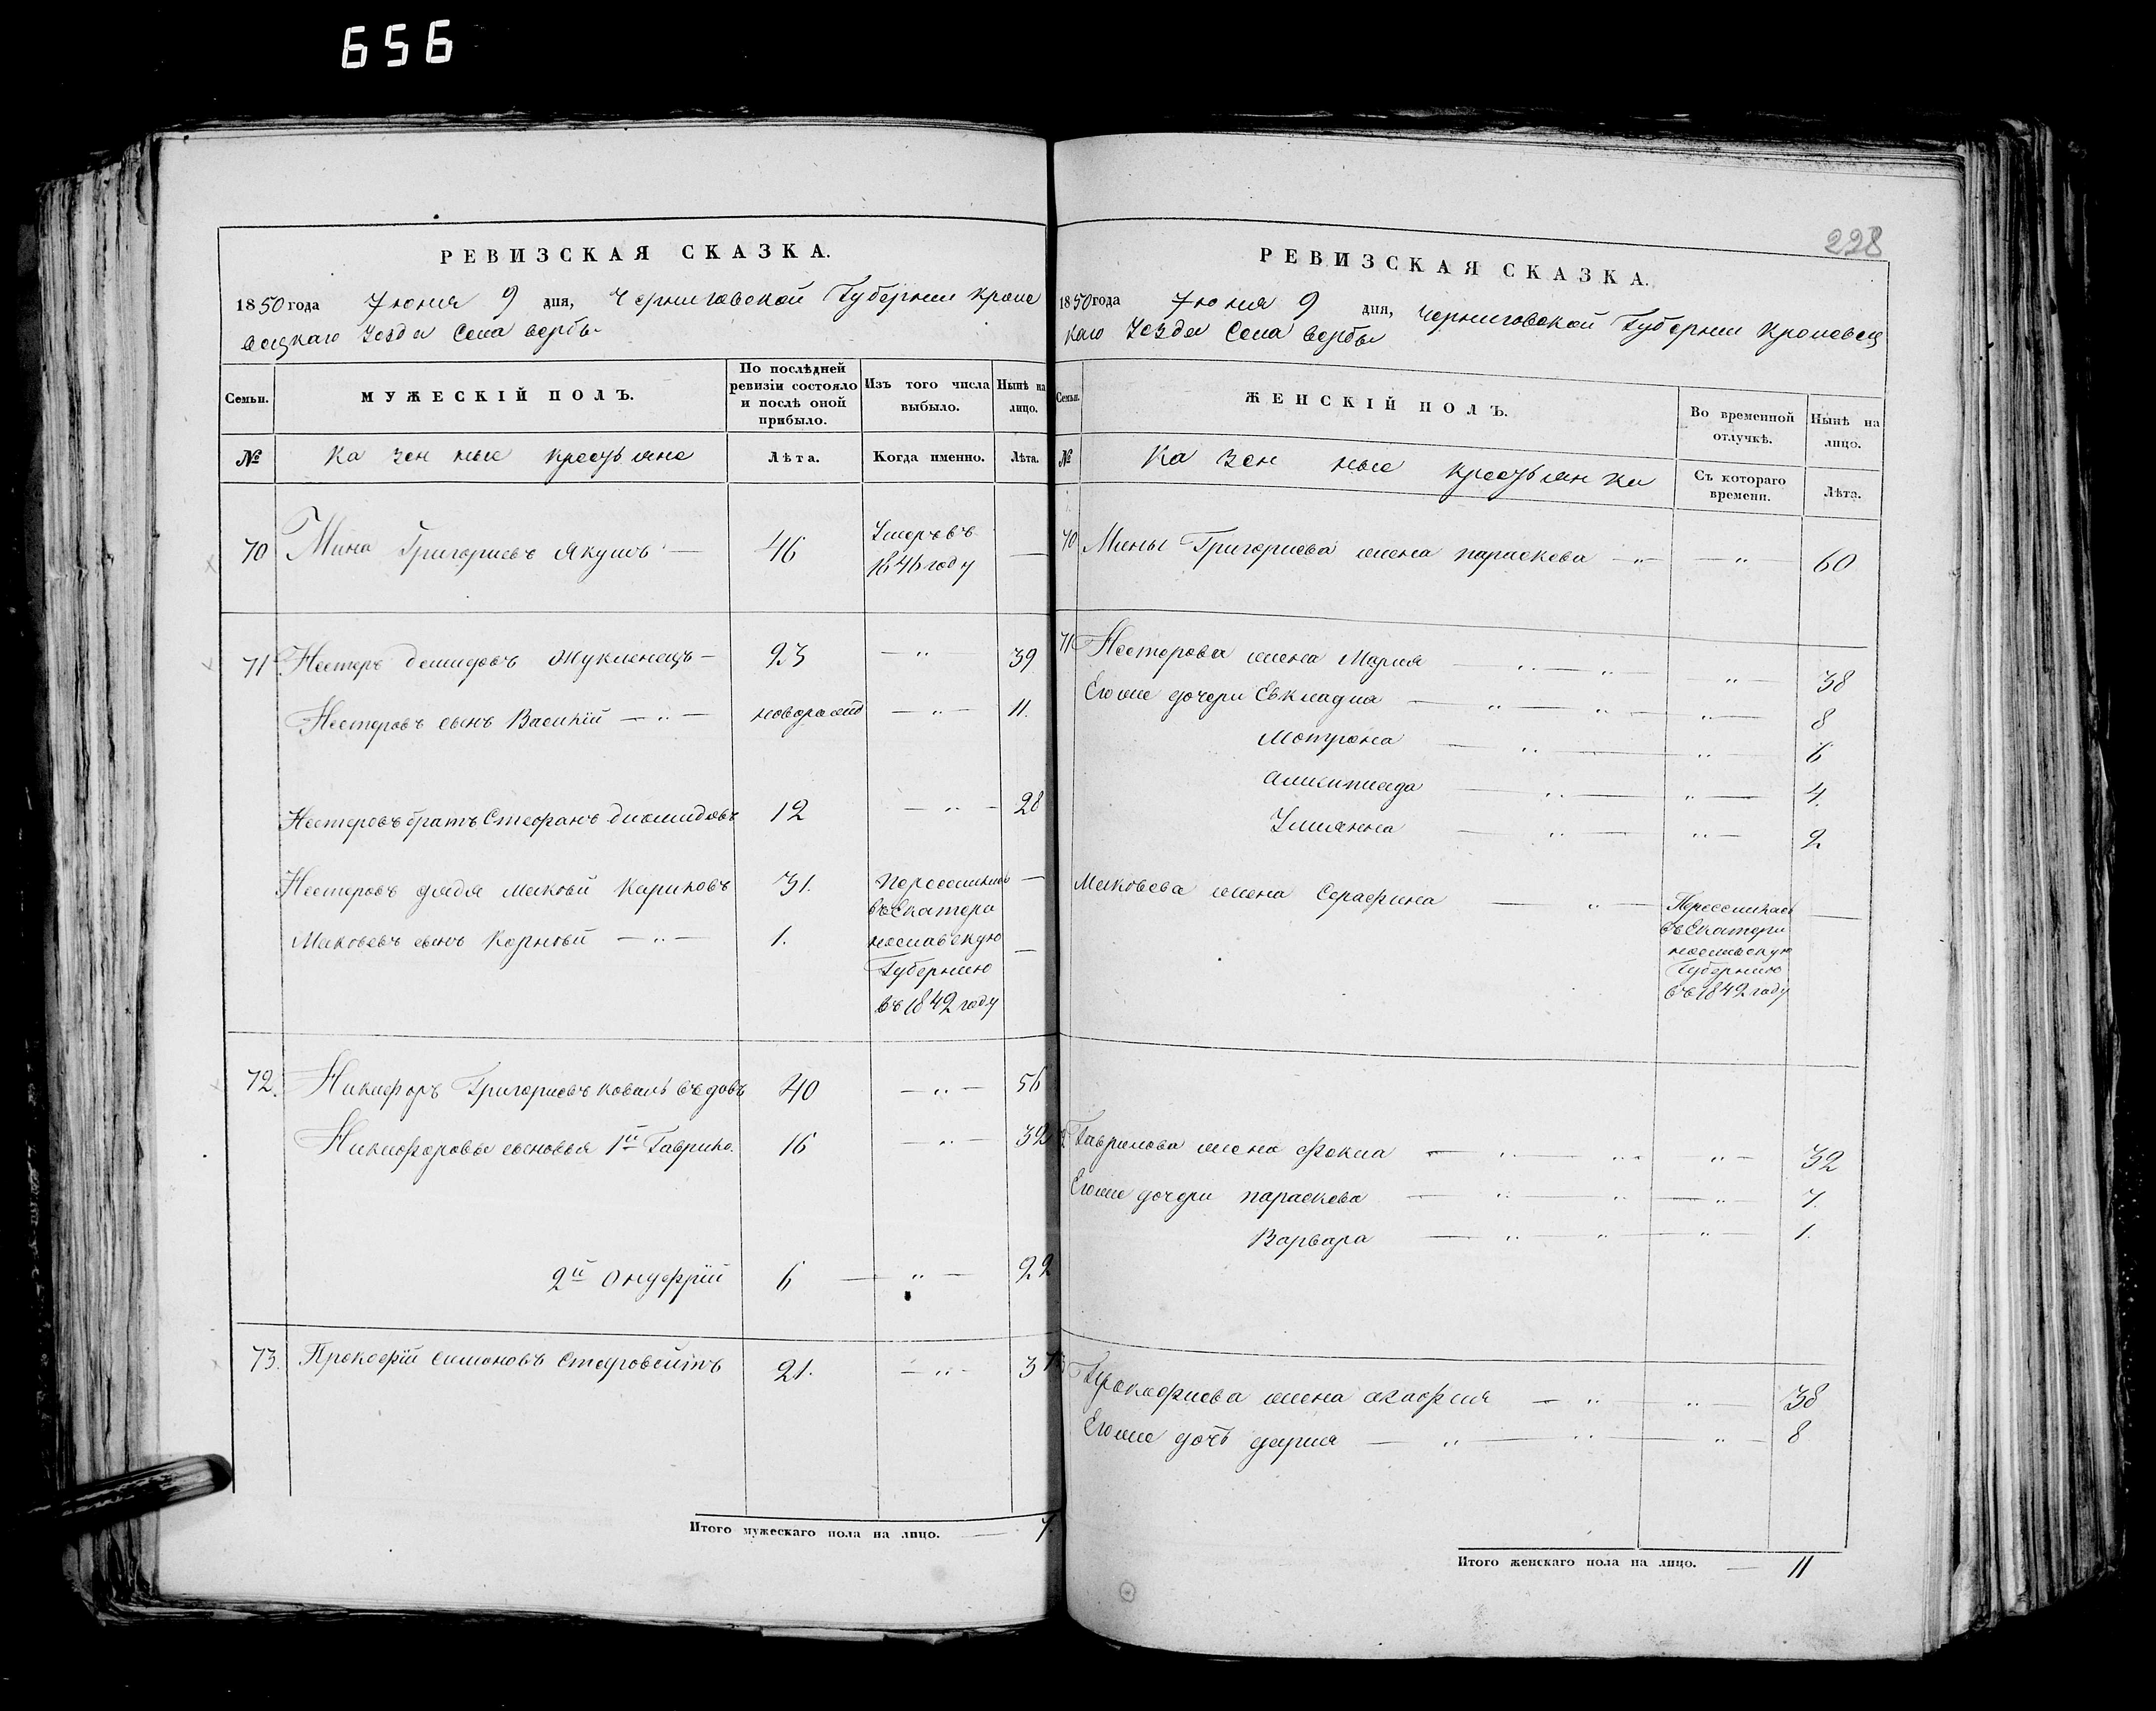 656
РЕВИЗСКАЯ СКАЗКА.
1850 года Іюня 9 дня, Черниговской Губернии Кроле
вецкаго Уезда Села вербы
Семьи. МУЖЕСКІЙ ПОЛЪ. По послѣдней ревизіи состояло и послѣ оной прибыло. Изъ того числа выбыло. Нынѣ на лицо.
№ Казенные крестьяне Лѣта. Когда именно. Лѣта.
70 Мина Григориевъ Якушъ — 46 Умеръ въ 1846 году —
71 Нестеръ демидовъ Жукленецъ — 23 — „ — 39
Нестеровъ сынъ Василий — „ — новорожд — „ — 11.
Нестеровъ братъ Стефанъ диомидовъ 12 — „ — 28
Нестеровъ дядя Маковий Карповъ 31. Переселились —
Маковевъ сынъ Корновий — „ — 1. въ Екатери
нославскую —
Губернию
въ 1842 году
72. Никифоръ Григориевъ коваль вдовъ 40 — „ — 56
Никифоровы сыновья 1й Гаврило. 16 — „ — 32
2й Онуфрий 6 — „ — 22
73. Прокофий Симоновъ 21. — „ — 37
Итого мужескаго пола на лицо. — 7.
228
РЕВИЗСКАЯ СКАЗКА.
1850 года Іюня 9 дня, Черниговской Губернии Кролевец
каго Уезда Села вербы
Семьи. ЖЕНСКІЙ ПОЛЪ. Во временной отлучкѣ. Нынѣ на лицо.
№ Казенные крестьянки Съ котораго времени. Лѣта.
70 Мины Григориева жена параскева — „ — — „ — 60
71 Нестерова жена Мария — „ — „ — „ — 38
Егоже дочери Евкладиа — „ — „ — „ — 8
Мотрона — „ — „ — 6
Алимпиада — „ — „ — 4.
Улиянна — „ — „ — 2
Маковева жена Серафима — „ — Переселилась —
въ Екатери
нославскую
Губернию
въ 1842 году
72 Гаврилова жена Фекла — „ — „ — „ — 32
Егоже дочери параскева — „ — „ — „ — 7.
Варвара — „ — „ — „ 1.
73 Прокофиева жена агафия — „ — „ — 38
Егоже дочь дария — „ — „ — „ — 8
Итого женскаго пола на лицо. — 11